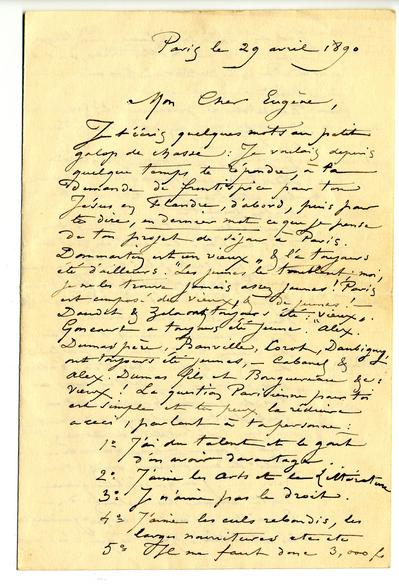 Paris le 29 avril 1890
Mon Cher Eugène,
Je t'écris quelques mots au petit
galop de chasse : Je voulais depuis
quelque temps, te répondre, à ta
demande de frontispice pour ton
Jésus en Flandre, d'abord, puis pour
te dire, en dernier mot ce que je pense
de ton projet de séjour à Paris.
Dommartin est un vieux, & l'a toujours
été d'ailleurs. "Les jeunes le troublent." moi,
je ne les trouve jamais assez jeunes ! Paris
est composé de vieux, & de jeunes ! –
Daudet & Zola ont toujours été : vieux,
Goncourt a toujours été jeune. Alex.
Dumas père, Banville, Corot, Daubigny,
ont toujours été jeunes, – Cabanel &
Alex. Dumas fils et Bouguereau &c :
vieux ! La question Parisienne pour toi
est simple et je peux la réduire
a ceci, parlant à ta personne :
1º J'ai du talent et le goût
d'en avoir davantage.
2º J'aime les arts et la Littérature
3º Je n'aime pas le droit.
4º J'aime les culs rebondis, les
larges nourritures etc etc
5º Il me faut donc 3,000 f